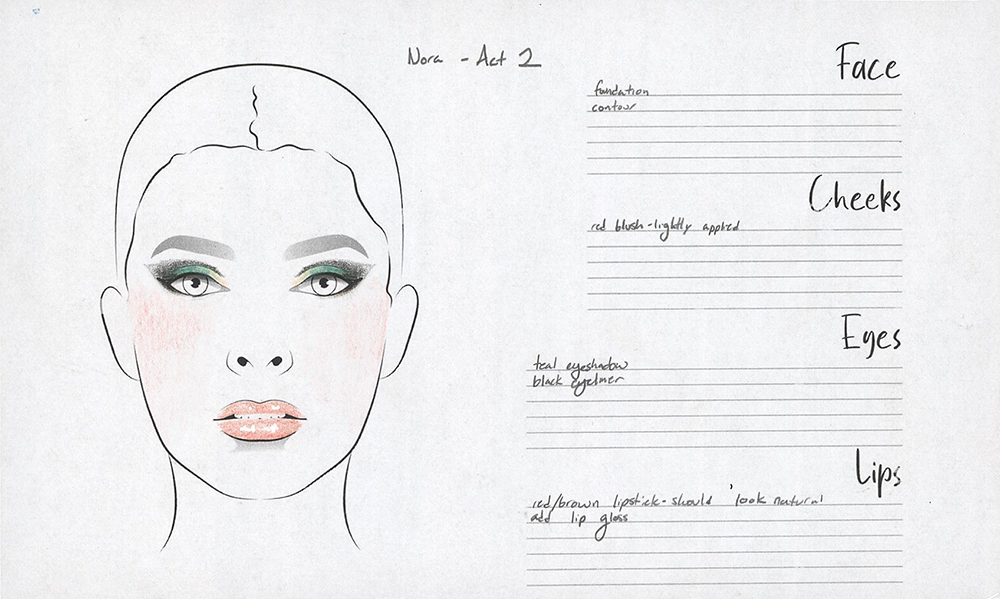 Nora - Act 2
Face
foundation
contour
Cheeks
red blush - lightly applied
Eyes
teal eyeshadow
black eyeliner
Lips
red/brown lipstick - should look natural
add lip gloss